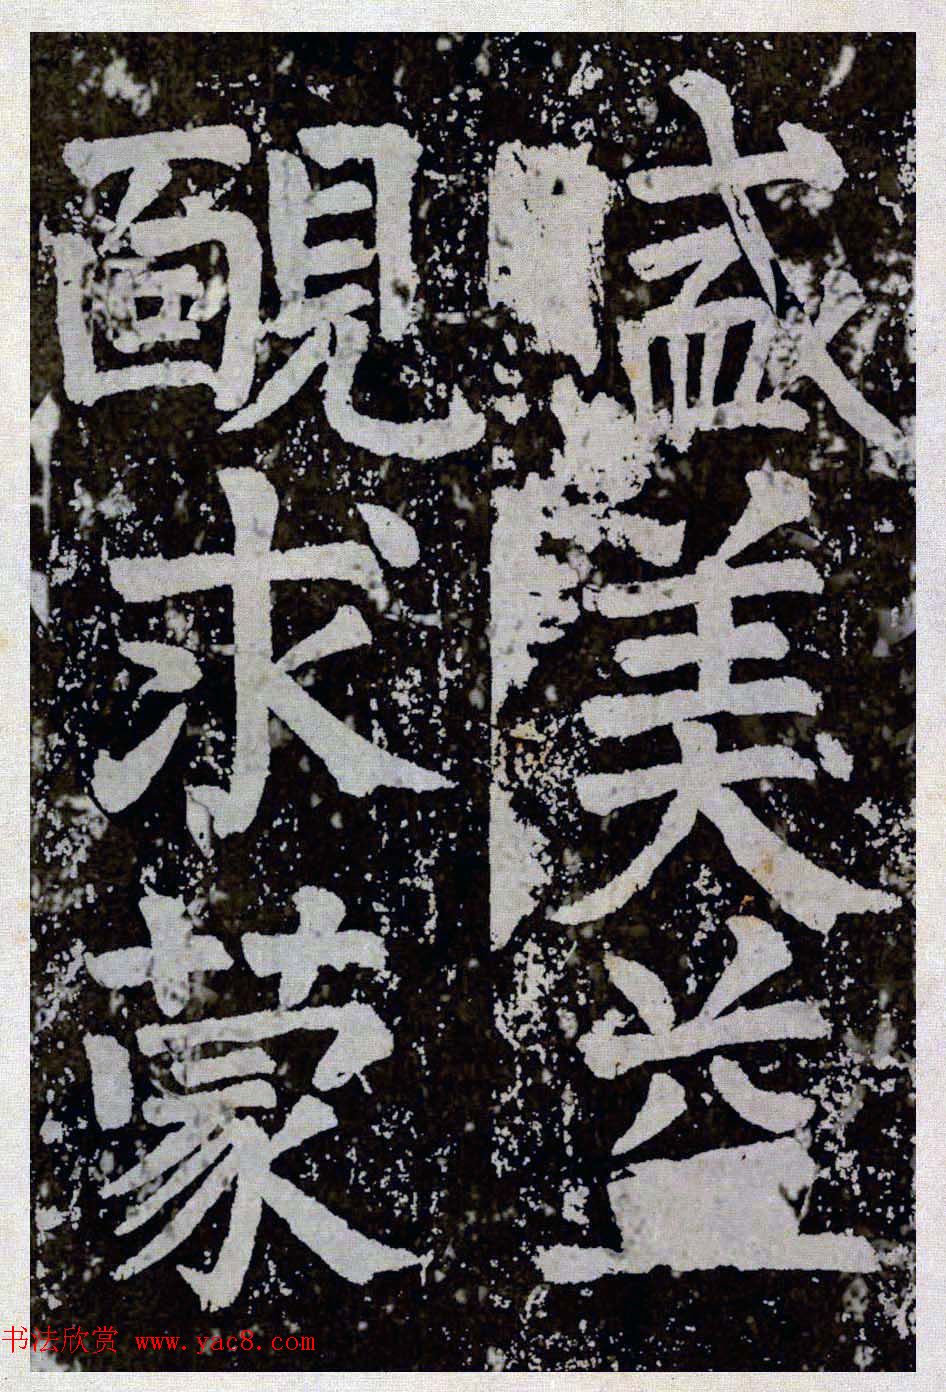 盛美益
靦求蒙
书法欣赏 www.yac8.com